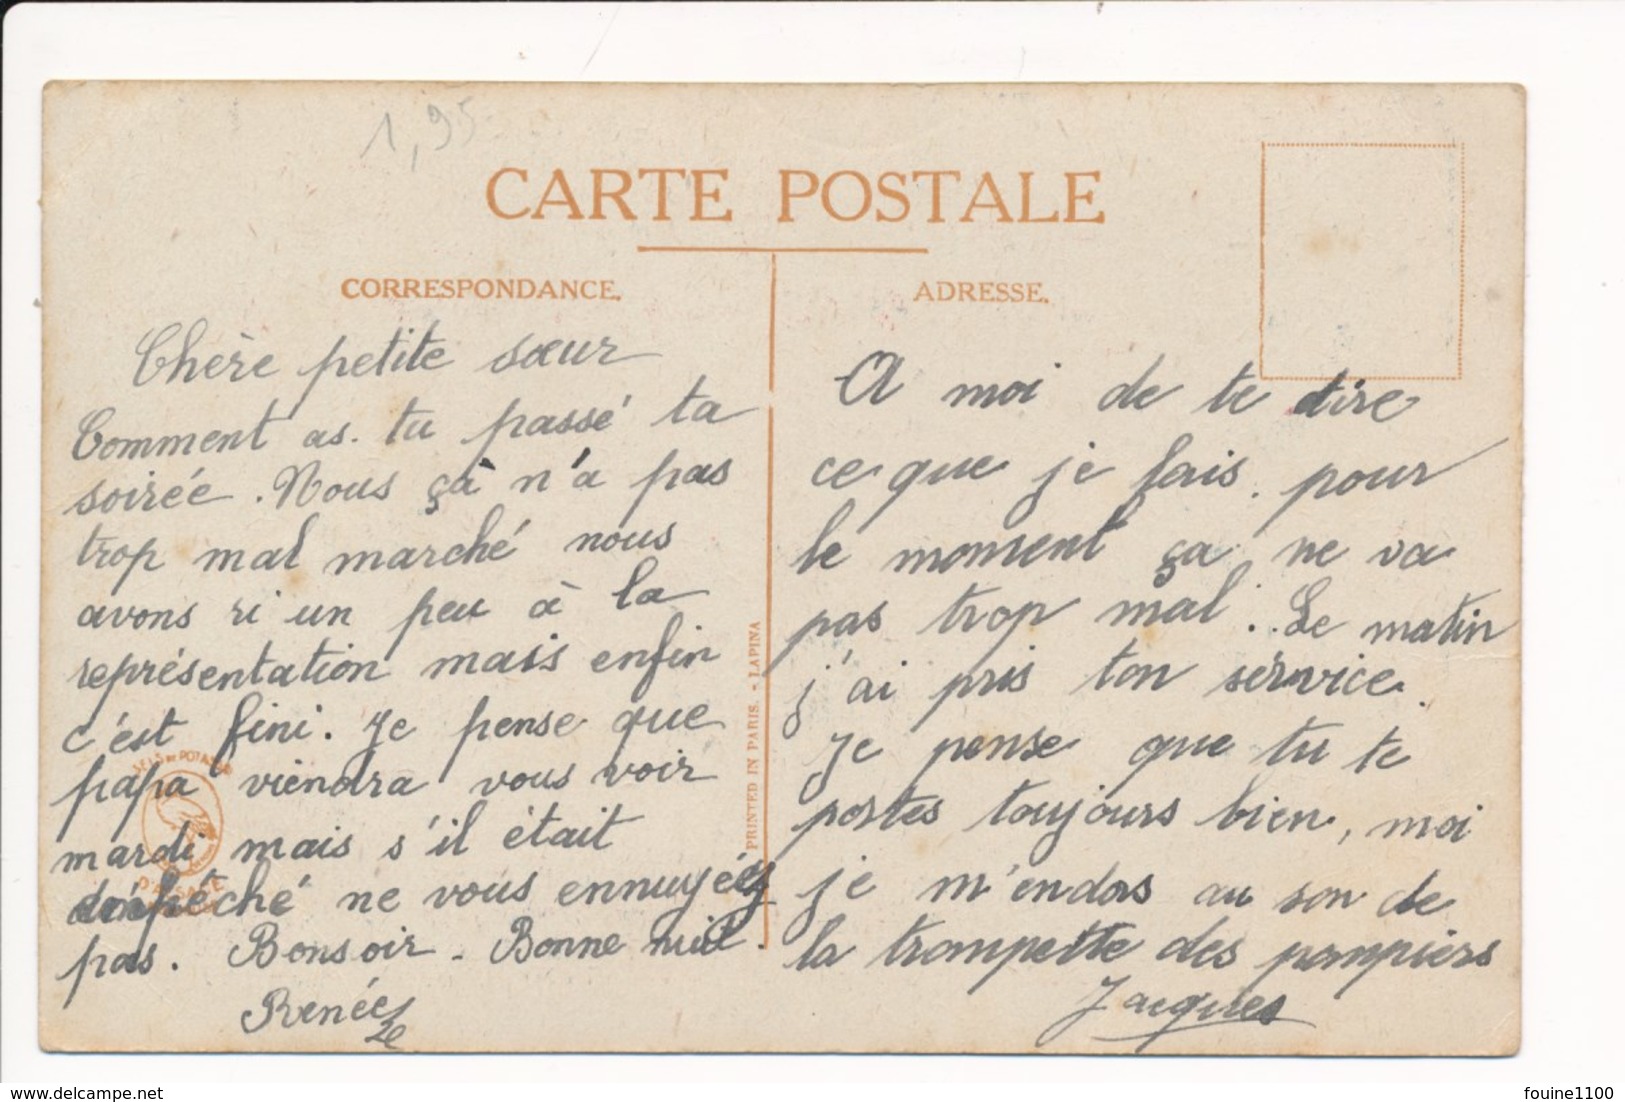 1,95
CARTE POSTALE
CORRESPONDANCE.
Chère petite sœur
Comment as-tu passé ta
soirée. Nous çà n'a pas
trop mal marché nous
avons ri un peu à la
représentation mais enfin
c'est fini. Je pense que
papa viendra vous voir
mardi mais s'il était
ne vous ennuyez
pas. Bonsoir - Bonne nuit.
Renée
SELS DE POTASSE
D'ALSACE
PRINTED IN PARIS. - LAPINA
ADRESSE.
A moi de te dire
ce que je fais. pour
le moment ça ne va
pas trop mal. Le matin
j'ai pris ton service.
Je pense que tu te
portes toujours bien, moi
je m'endors au son de
la trompette des pompiers
Jacques
www.delcampe.net
fouine1100